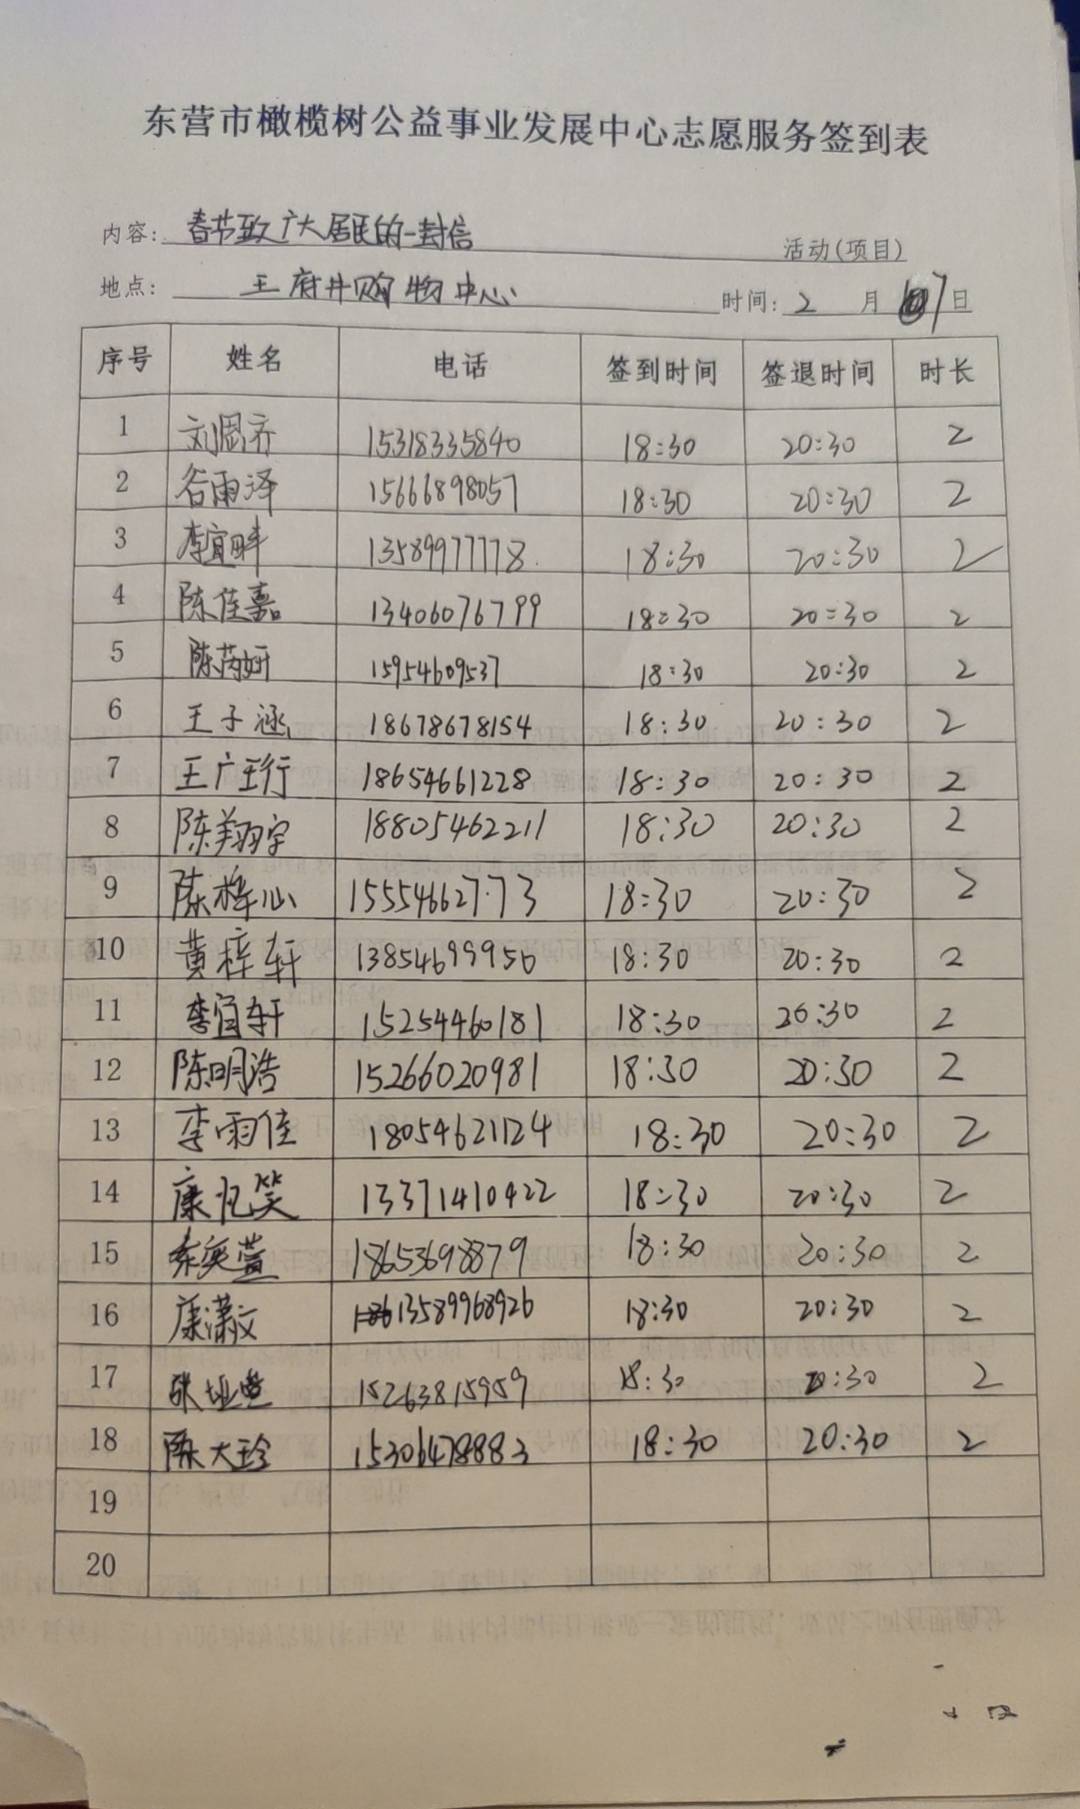 东营市橄榄树公益事业发展中心志愿服务签到表
内容: 春节致广大居民的一封信 活动(项目)
地点: 王府井购物中心 时间: 2 月 7 日
序号 姓名 电话 签到时间 签退时间 时长
1 刘恩齐 15318335840 18:30 20:30 2
2 谷雨泽 15666898057 18:30 20:30 2
3 李宜畔 13589977778 18:30 20:30 2
4 陈佳嘉 13406076799 18:30 20:30 2
5 陈芮妍 15954609537 18:30 20:30 2
6 王子涵 18678678154 18:30 20:30 2
7 王广行 18654661228 18:30 20:30 2
8 陈翔宇 18805462211 18:30 20:30 2
9 陈梓心 15554662773 18:30 20:30 2
10 黄梓轩 13854699956 18:30 20:30 2
11 李宜轩 15254460181 18:30 20:30 2
12 陈明浩 15266020981 18:30 20:30 2
13 李雨佳 18054621124 18:30 20:30 2
14 康忆笑 13371410422 18:30 20:30 2
15 奕萱 18653698879 18:30 20:30 2
16 康潇文 13589968926 18:30 20:30 2
17 张 15263815959 18:30 20:30 2
18 陈大珍 15306478883 18:30 20:30 2
19
20